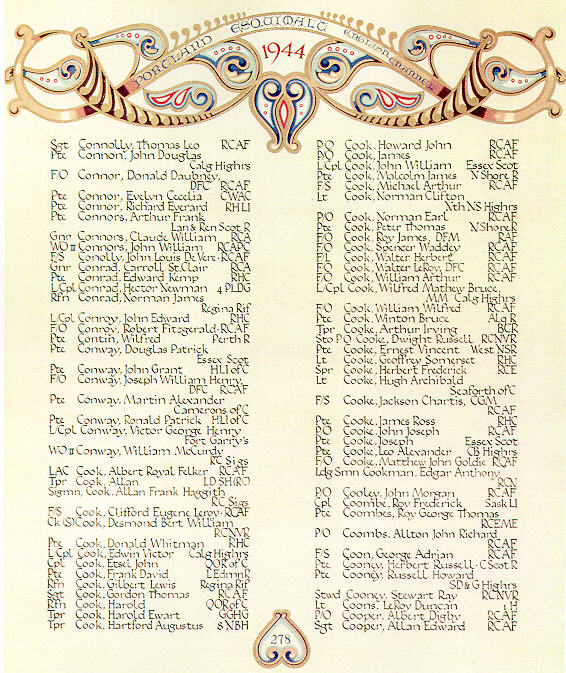 PORTLAND ESQUIMALT ENGLISH CHANNEL
1944
Sgt Connolly, Thomas Leo RCAF
Pte Connon, John Douglas
Calg Highrs
F/O Connor, Donald Daubney,
DFC RCAF
Pte Connor, Evelyn Cecelia CWAC
Pte Connor, Richard Everard RHLI
Pte Connors, Arthur Frank
Lan & Ren Scot R
Gnr Connors, Claude William RCA
WO II Connors, John William RCAPC
F/S Conolly, John Louis DeVere RCAF
Gnr Conrad, Carroll St.Clair RCA
Pte Conrad, Edward Kemp RHC
L/Cpl Conrad, Hector Newman 4 PLDG
Rfn Conrad, Norman James
Regina Rif
L/Cpl Conroy, John Edward RHC
F/O Conroy, Robert Fitzgerald RCAF
Pte Contin, Wilfred Perth R
Pte Conway, Douglas Patrick
Essex Scot
Pte Conway, John Grant HLI of C
F/O Conway, Joseph William Henry,
DFC RCAF
Pte Conway, Martin Alexander
Camerons of C
Pte Conway, Ronald Patrick HLI of C
L/Cpl Conway, Victor George Henry
Fort Garry's
WO II Conway, William McCurdy
RC Sigs
LAC Cook, Albert Royal Felker RCAF
Tpr Cook, Allan LD SH (RC)
Sigmn, Cook, Allan Frank Haggith
RC Sigs
F/S Cook, Clifford Eugene Leroy RCAF
Ck (S) Cook, Desmond Bert William
RCNVR
Pte Cook, Donald Whitman RHC
L/Cpl Cook, Edwin Victor Calg Highrs
Cpl Cook, Etsel John QOR of C
Pte Cook, Frank David L Edmn R
Rfn Cook, Gilbert Lewis Regina Rif
Sgt Cook, Gordon Thomas RCAF
Rfn Cook, Harold QOR of C
Tpr Cook, Harold Ewart GGHG
Tpr Cook, Hartford Augustus 8 NBH
P/O Cook, Howard John RCAF
P/O Cook, James RCAF
L/Cpl Cook, John William Essex Scot
Pte Cook, Malcolm James N Shore R
F/S Cook, Michael Arthur RCAF
Lt Cook, Norman Clifton
Nth NS Highrs
P/O Cook, Norman Earl RCAF
Pte Cook, Peter Thomas N Shore R
F/O Cook, Roy James, DFM RAF
F/O Cook, Spencer Waddey RCAF
F/L Cook, Walter Herbert RCAF
F/O Cook, Walter LeRoy, DFC RCAF
F/O Cook, William Arthur RCAF
L/Cpl Cook, Wilfred Mathew Bruce,
MM Calg Highrs
F/O Cook, William Wilfred RCAF
Pte Cook, Winton Bruce Alg R
Tpr Cooke, Arthur Irving BCR
Sto P.O Cooke, Dwight Russell RCNVR
Pte Cooke, Ernest Vincent West NSR
Lt Cooke, Geoffrey Somerset RHC
Spr Cooke, Herbert Frederick RCE
Lt Cooke, Hugh Archibald
Seaforth of C
F/S Cooke, Jackson Chartis, CGM
RCAF
Pte Cooke, James Ross RHC
P/O Cooke, John Joseph RCAF
Pte Cooke, Joseph Essex Scot
Pte Cooke, Leo Alexander CB Highrs
F/O Cooke, Matthew John Goldie RCAF
Ldg Smn Cookman, Edgar Anthony
RCN
P/O Cooley, John Morgan RCAF
Cpl Coombe, Roy Frederick Sask LI
Pte Coombes, Roy George Thomas
RCEME
P/O Coombs, Allton John Richard
RCAF
F/S Coon, George Adrian RCAF
Pte Cooney, Herbert Russell C Scot R
Pte Cooney, Russell Howard
SD & G Highrs
Stwd Cooney, Stewart Ray RCNVR
Lt Coons, LeRoy Duncan 1 H
P/O Cooper, Albert Digby RCAF
Sgt Cooper, Allan Edward RCAF
278